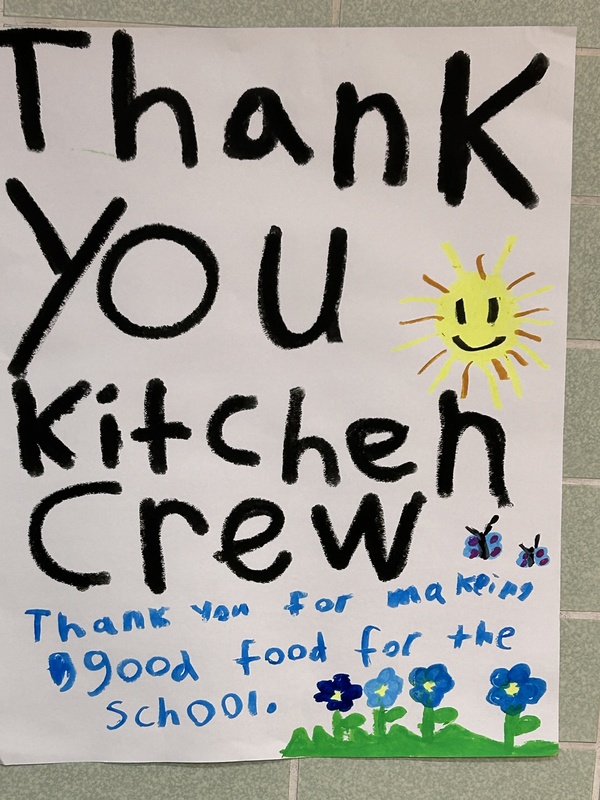 Thank
You
Kitchen
Crew
Thank you for makeing
good food for the
school.